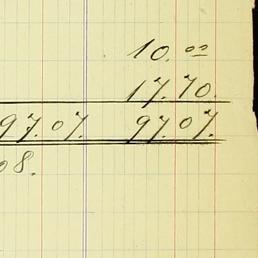 10.00
17.70.
97.07. 97.07.
08.